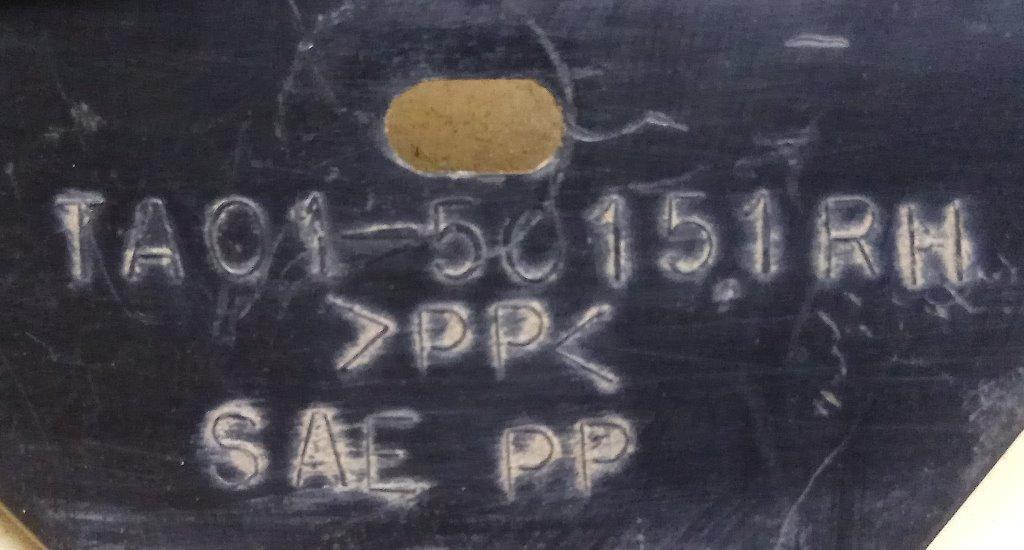 TA01-50151RH
>PP<
SAE PP